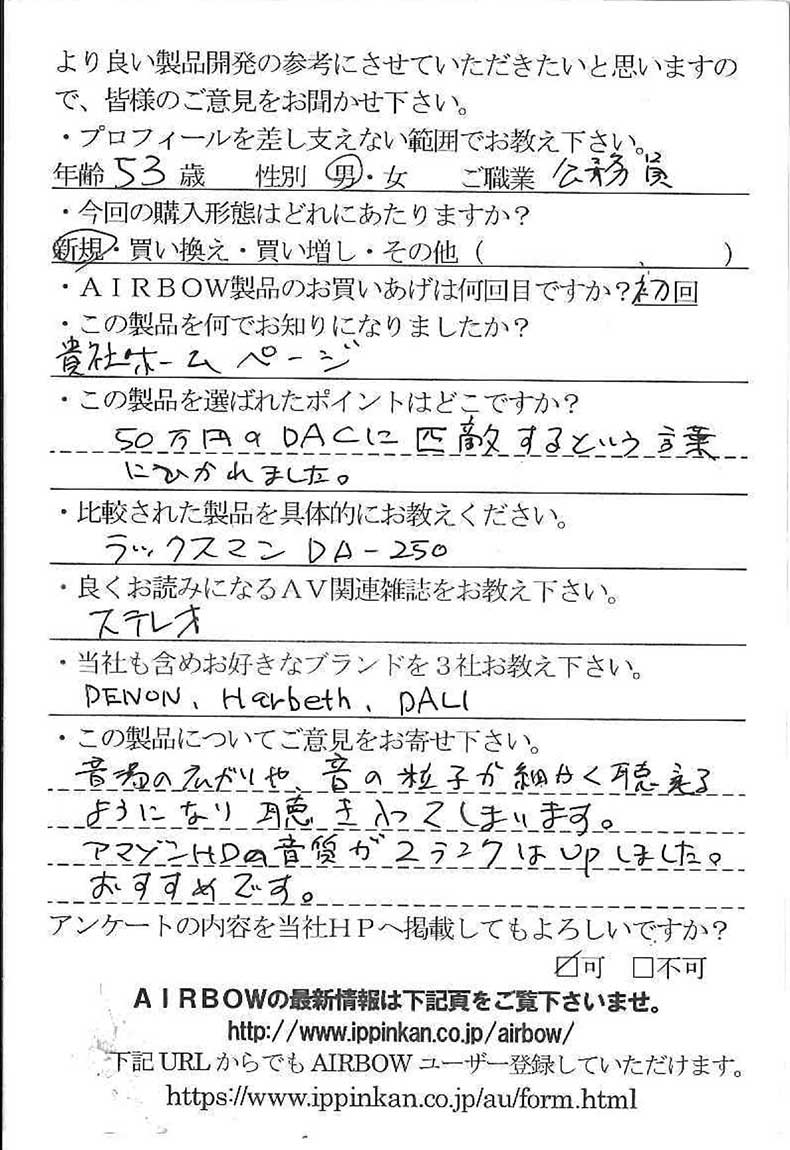 より良い製品開発の参考にさせていただきたいと思いますの
で、皆様のご意見をお聞かせ下さい。
・プロフィールを差し支えない範囲でお教え下さい。
年齢 53 歳 性別 男・女 ご職業 公務員
・今回の購入形態はどれにあたりますか?
新規・買い換え・買い増し・その他（ ）
・ＡＩＲＢＯＷ製品のお買いあげは何回目ですか?初回
・この製品を何でお知りになりましたか?
貴社ホームページ
・この製品を選ばれたポイントはどこですか?
50万円のDACに匹敵するという言葉
にひかれました。
・比較された製品を具体的にお教えください。
ラックスマン DA-250
・良くお読みになるＡＶ関連雑誌をお教え下さい。
ステレオ
・当社も含めお好きなブランドを３社お教え下さい。
DENON、Harbeth、DALI
・この製品についてご意見をお寄せ下さい。
音場の広がりや、音の粒子が細かく聴える
ようになり聴き入ってしまいます。
アマゾンHDの音質が2ランクはupしました。
おすすめです。
アンケートの内容を当社ＨＰへ掲載してもよろしいですか?
☑可 □不可
ＡＩＲＢＯＷの最新情報は下記頁をご覧下さいませ。
http://www.ippinkan.co.jp/airbow/
下記 URL からでも AIRBOW ユーザー登録していただけます。
https://www.ippinkan.co.jp/au/form.html